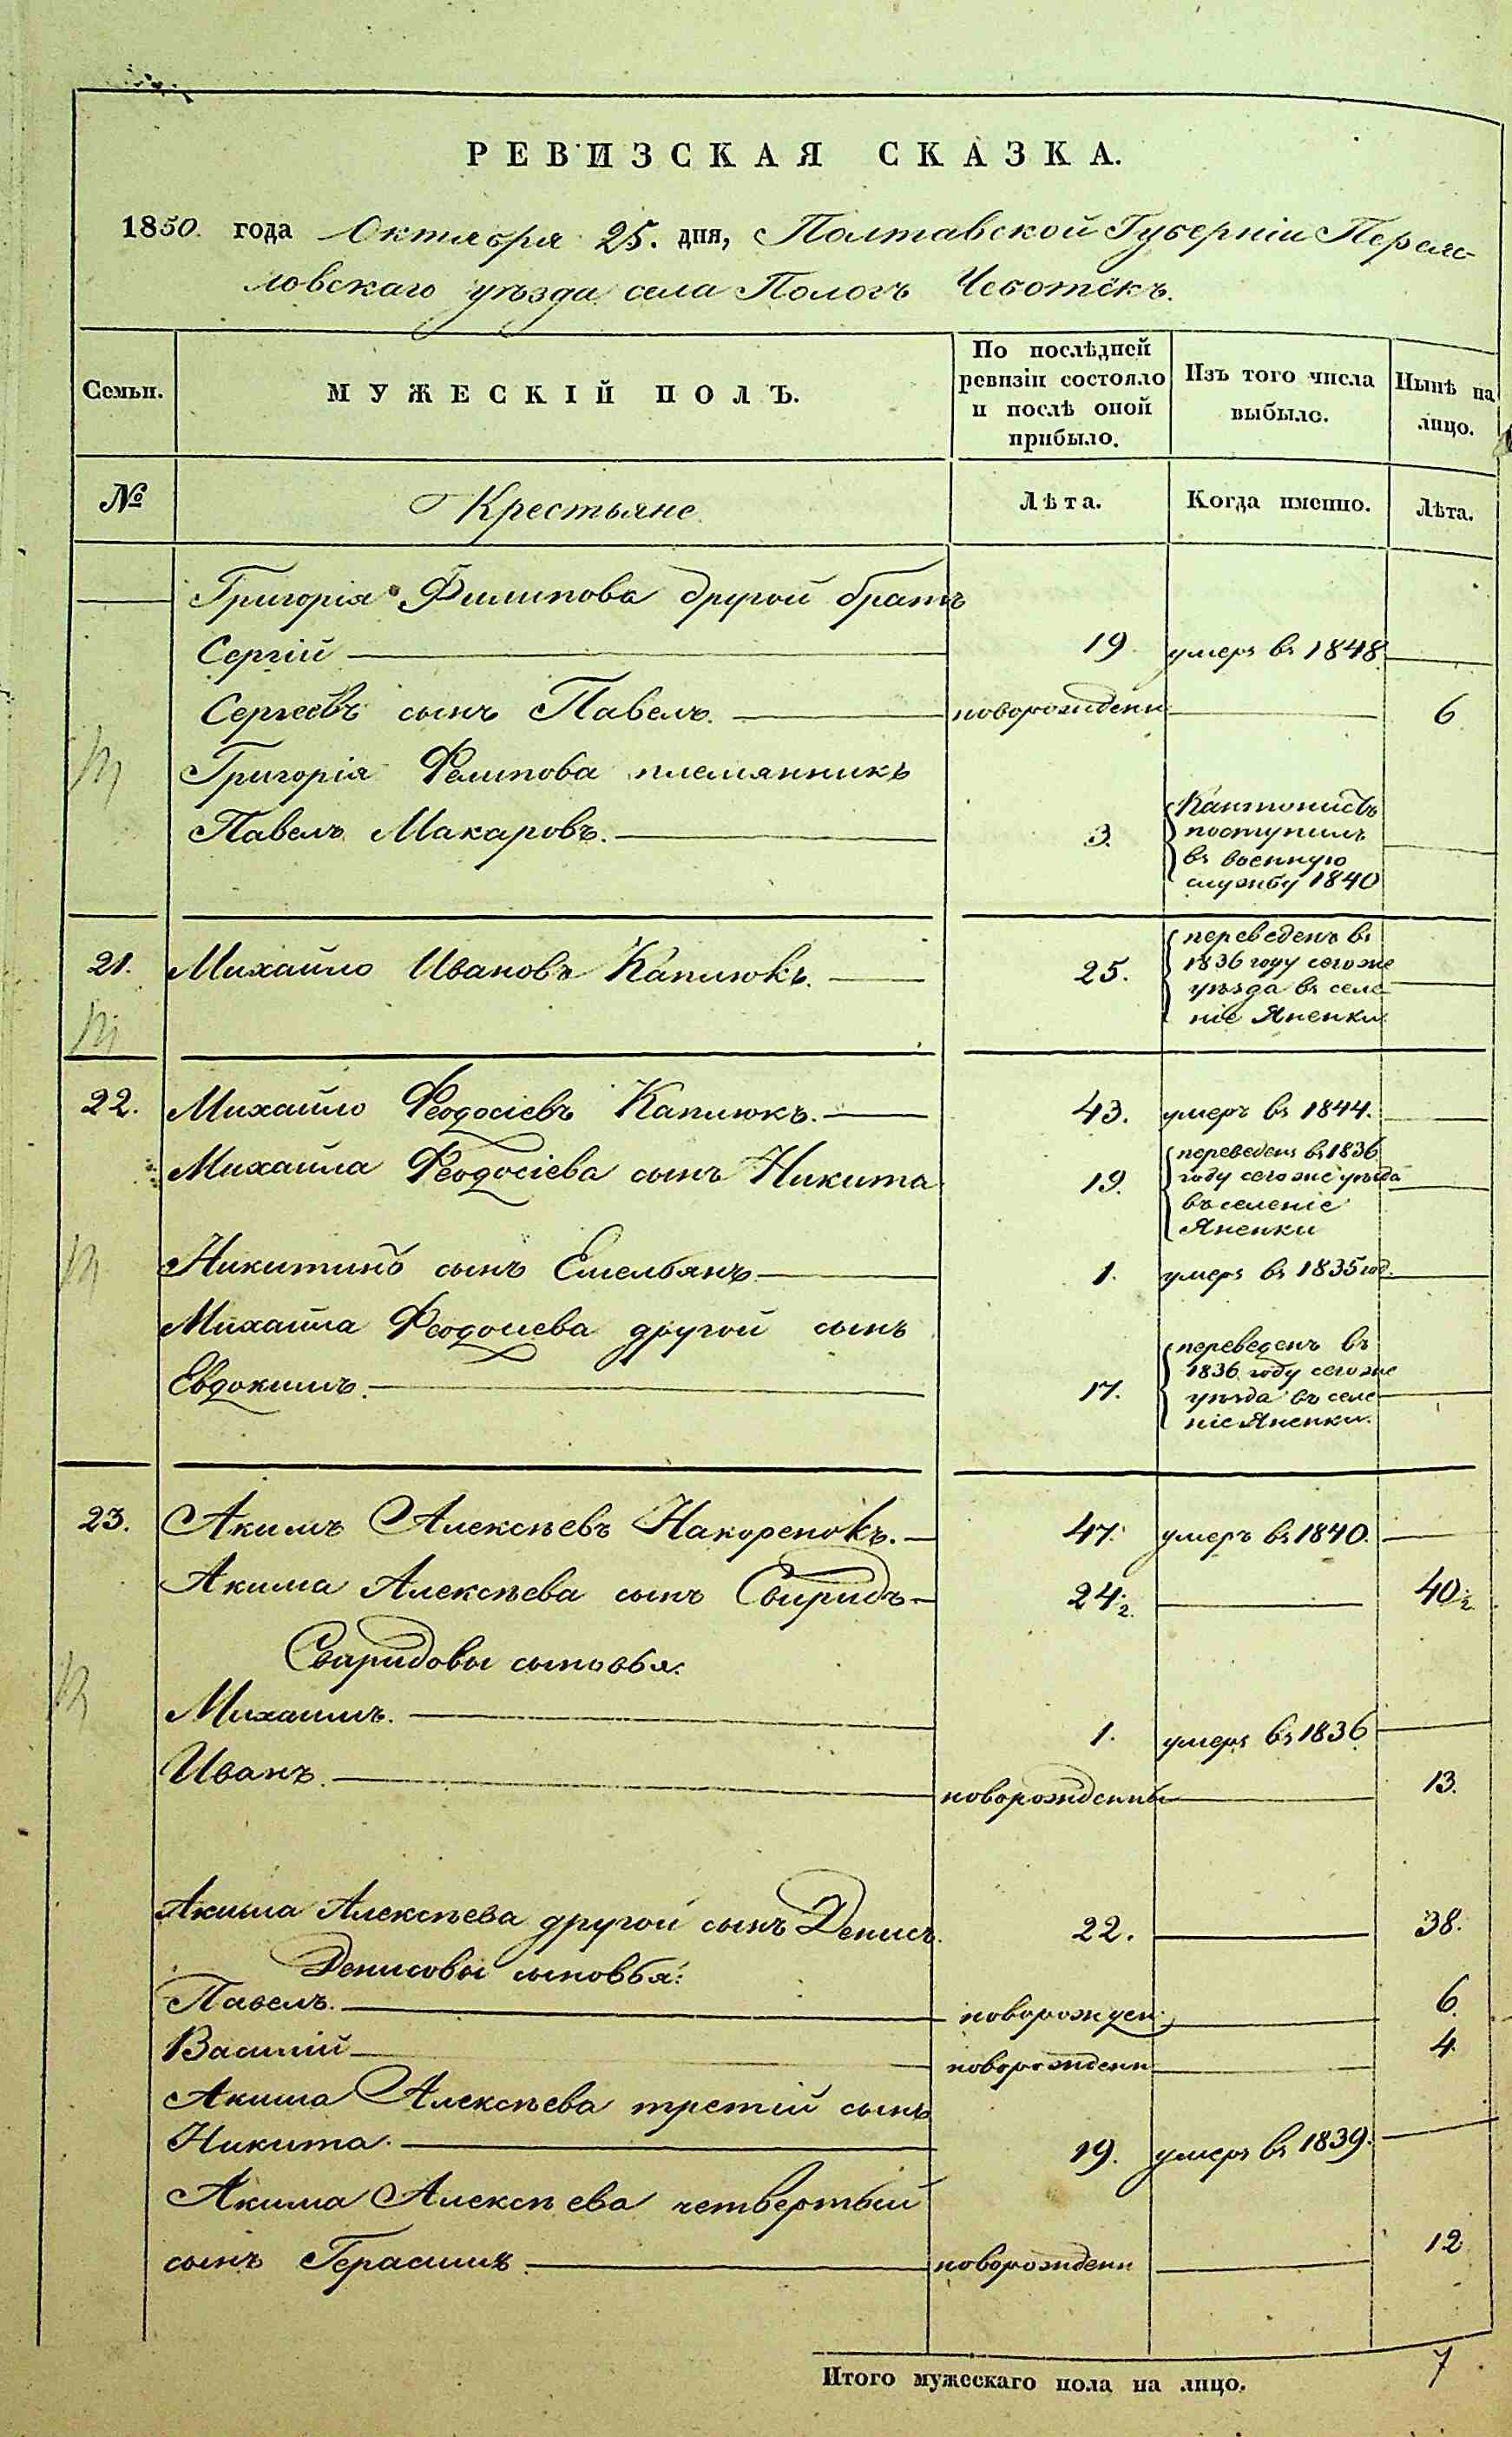 РЕВИЗСКАЯ СКАЗКА.
1850. года Октября 25. дня, Полтавской Губерніи Переяс-
ловскаго уѣзда села Пологъ Чеботёкъ.
Семьи.
МУЖЕСКІЙ ПОЛЪ.
По послѣдней
ревизіи состояло
и послѣ оной
прибыло.
Изъ того числа
выбыло.
Нынѣ на
лицо.
№
Крестьяне
Лѣта.
Когда именно.
Лѣта.
Григорія Филипова другой братъ
Сергій 19. умеръ въ 1848
Сергѣевъ сынъ Павелъ. новорожденн 6
Григорія Фелипова племянникъ
Павелъ Макаровъ. 3.
Кантонистъ
поступилъ
въ военную
службу 1840
21. Михайло Ивановъ Каплюкъ. 25.
переведенъ въ
1836 году сегоже
уѣзда въ селе
ніе Яненки
22. Михайло Феодосіевъ Каплюкъ. 43. умеръ въ 1844.
Михайла Феодосіева сынъ Никита 19.
переведенъ въ 1836
году сегоже уѣзда
въ селеніе
Яненки
Никитинъ сынъ Емельянъ 1. умеръ въ 1835 год.
Михайла Феодосіева другой сынъ
Евдокимъ. 17.
переведенъ въ
1836 году сегоже
уѣзда въ селе
ніе Яненки.
23. Акимъ Алексѣевъ Накоренокъ. 47. умеръ въ 1840.
Акима Алексѣева сынъ Свиридъ 24½ 40½
Свиридовы сыновья:
Михаилъ. 1. умеръ въ 1836
Иванъ. новорожденны 13.
Акима Алексѣева другой сынъ Денисъ. 22. 38.
Денисовы сыновья:
Павелъ. новорожден: 6.
Василій новорожденн 4.
Акима Алексѣева третій сынъ
Никита. 19. умеръ въ 1839.
Акима Алексѣева четвертый
сынъ Герасимъ новорожденн 12
Итого мужескаго пола на лицо. 7